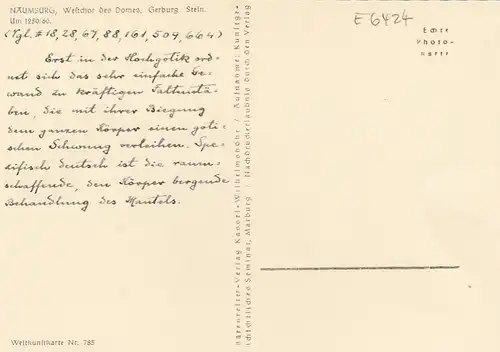 NAUMBURG, Westchor des Domes, Gerburg. Stein.
Um 1250/60.
(Vgl. #18, 28, 67, 88, 161, 509, 664)
Erst in der Hochgotik ord-
net sich das sehr einfache Ge-
wand zu kräftigen Faltenstä-
ben, die mit ihrer Biegung
dem ganzen Körper einen goti-
schen Schwung verleihen. Spe-
zifisch deutsch ist die raum-
schaffende, den Körper bergende
Behandlung des Mantels.
Weltkunstkarte Nr. 785
Bärenreiter-Verlag Kassel-Wilhelmshöhe / Aufnahme: Kunstge-
schichtliches Seminar, Marburg / Nachdruckerlaubnis durch den Verlag
E 6424
Echte
Photo-
karte